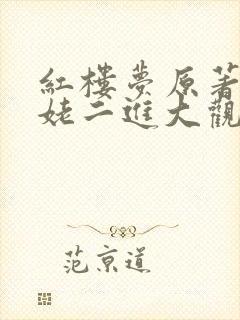 紅樓夢原著
姥二進大觀
范京道